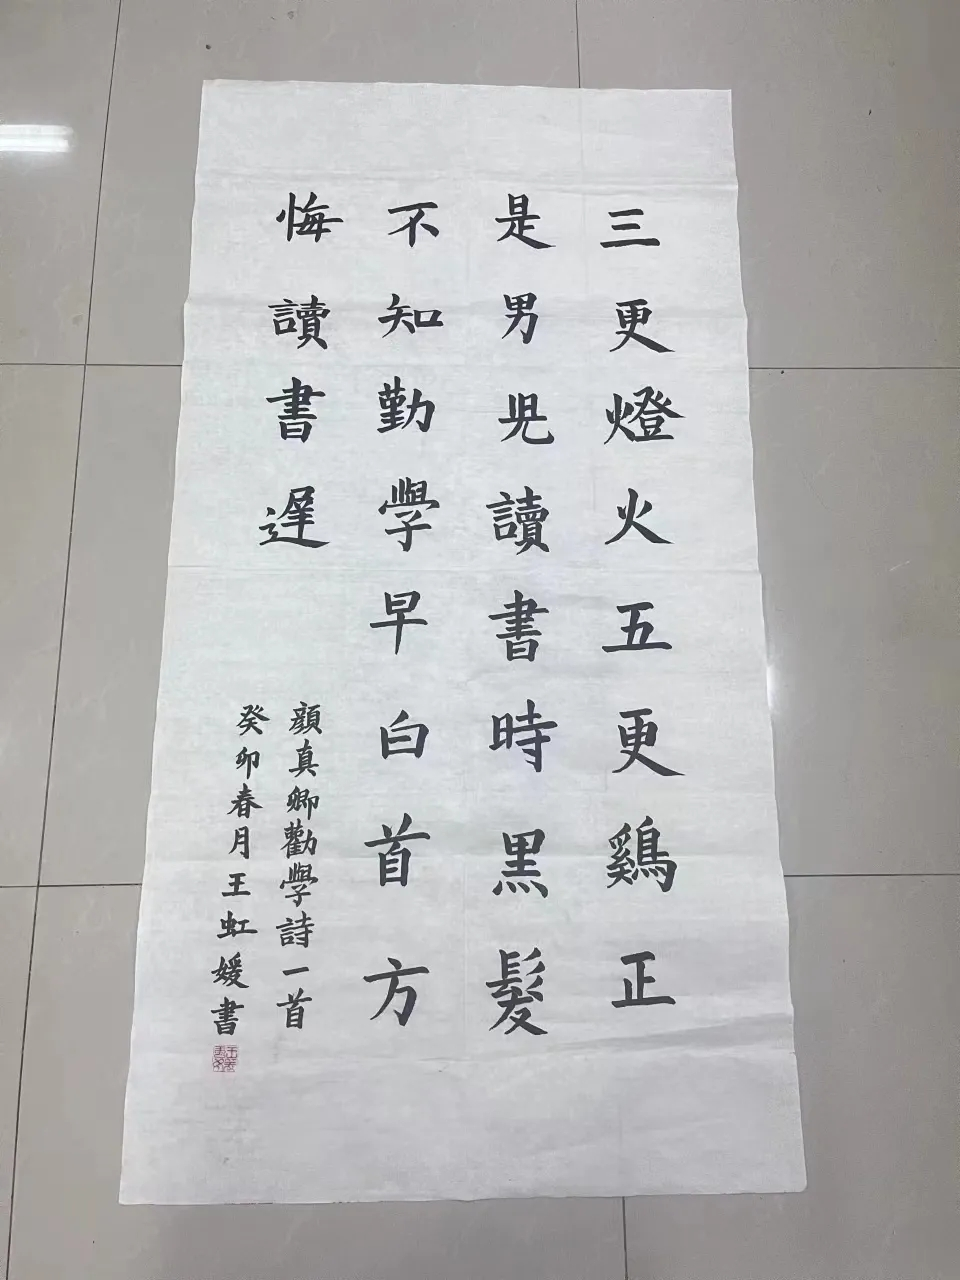 三更燈火五更鷄正
是男児讀書時黑髮
不知勤學早白首方
悔讀書遲
顔真卿勸學詩一首
癸卯春月王虹媛書